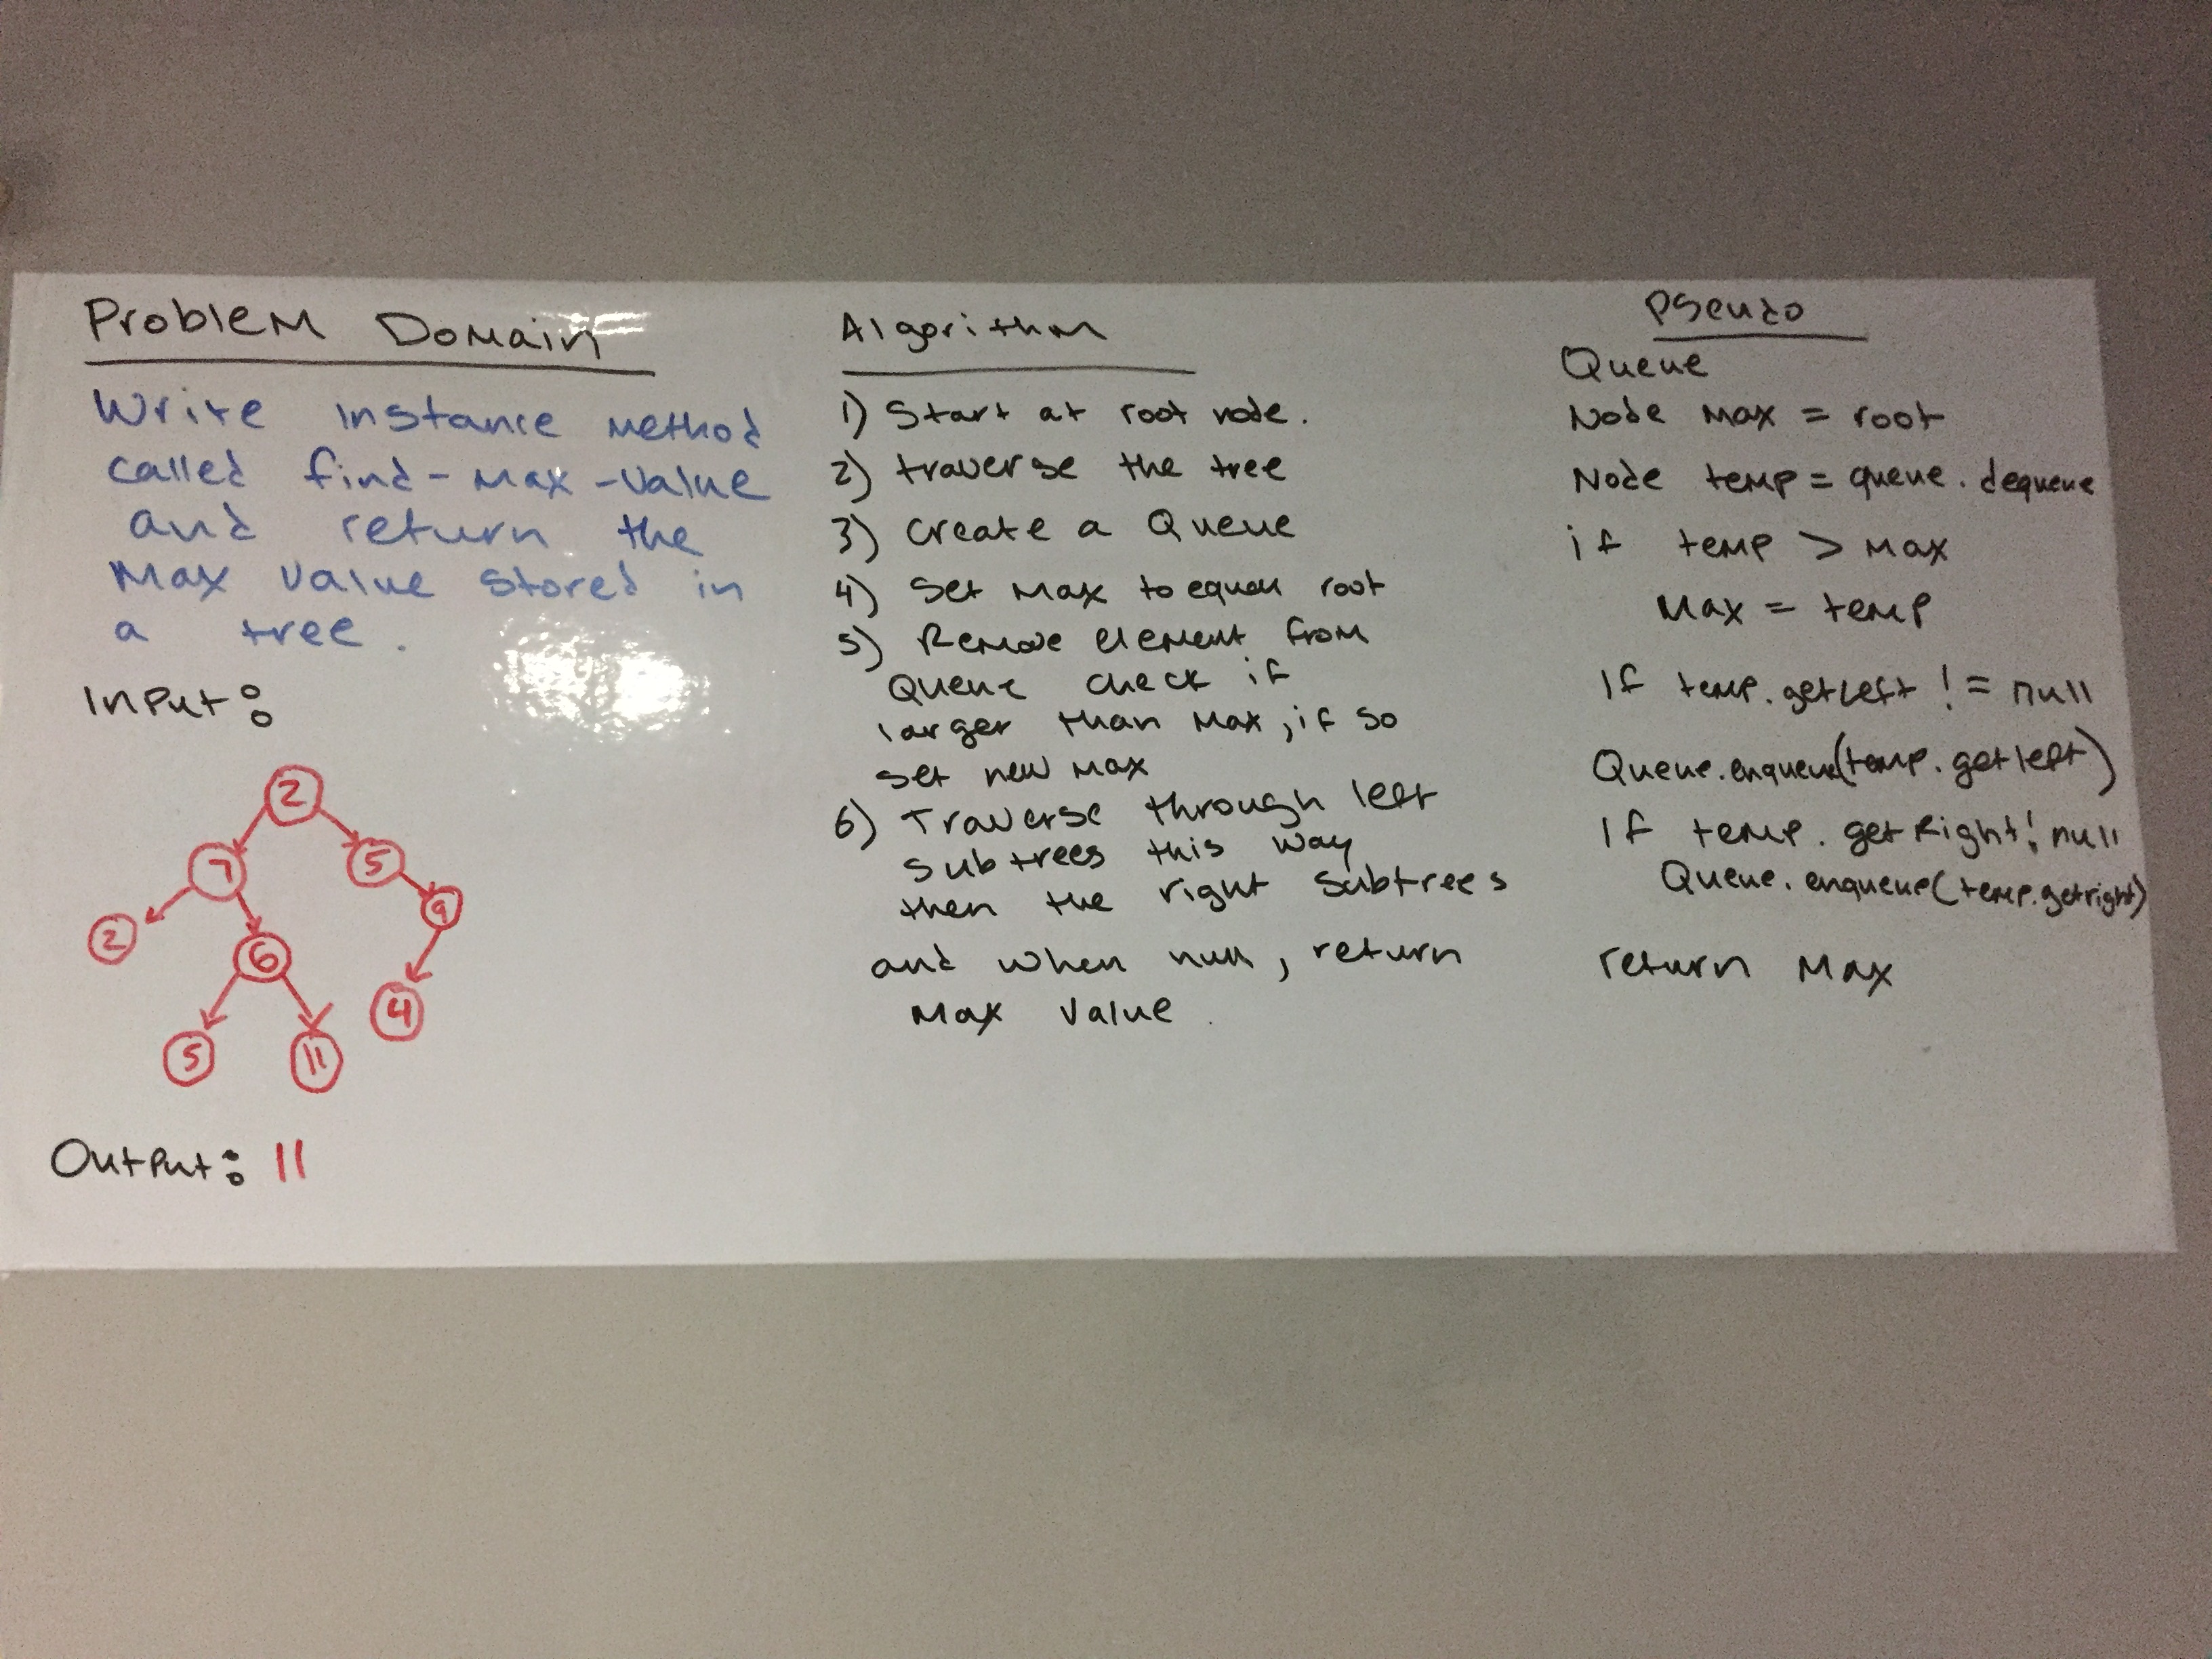 Problem Domain
Write instance method
called find-max-value
and return the
Max value stored in
a tree.
Input:
2
7
5
2
6
9
5
11
4
Output: 11
Algorithm
1) Start at root node.
2) traverse the tree
3) Create a Queue
4) Set Max to equal root
5) Remove element from
Queue check if
larger than Max, if so
set new max
6) Traverse through left
subtrees this way
then the right subtrees
and when null, return
Max value.
Pseudo
Queue
Node max = root
Node temp = queue.dequeue
if temp > max
Max = temp
If temp.getLeft != null
Queue.enqueue(temp.getleft)
If temp.getRight! null
Queue.enqueue(temp.getright)
return Max